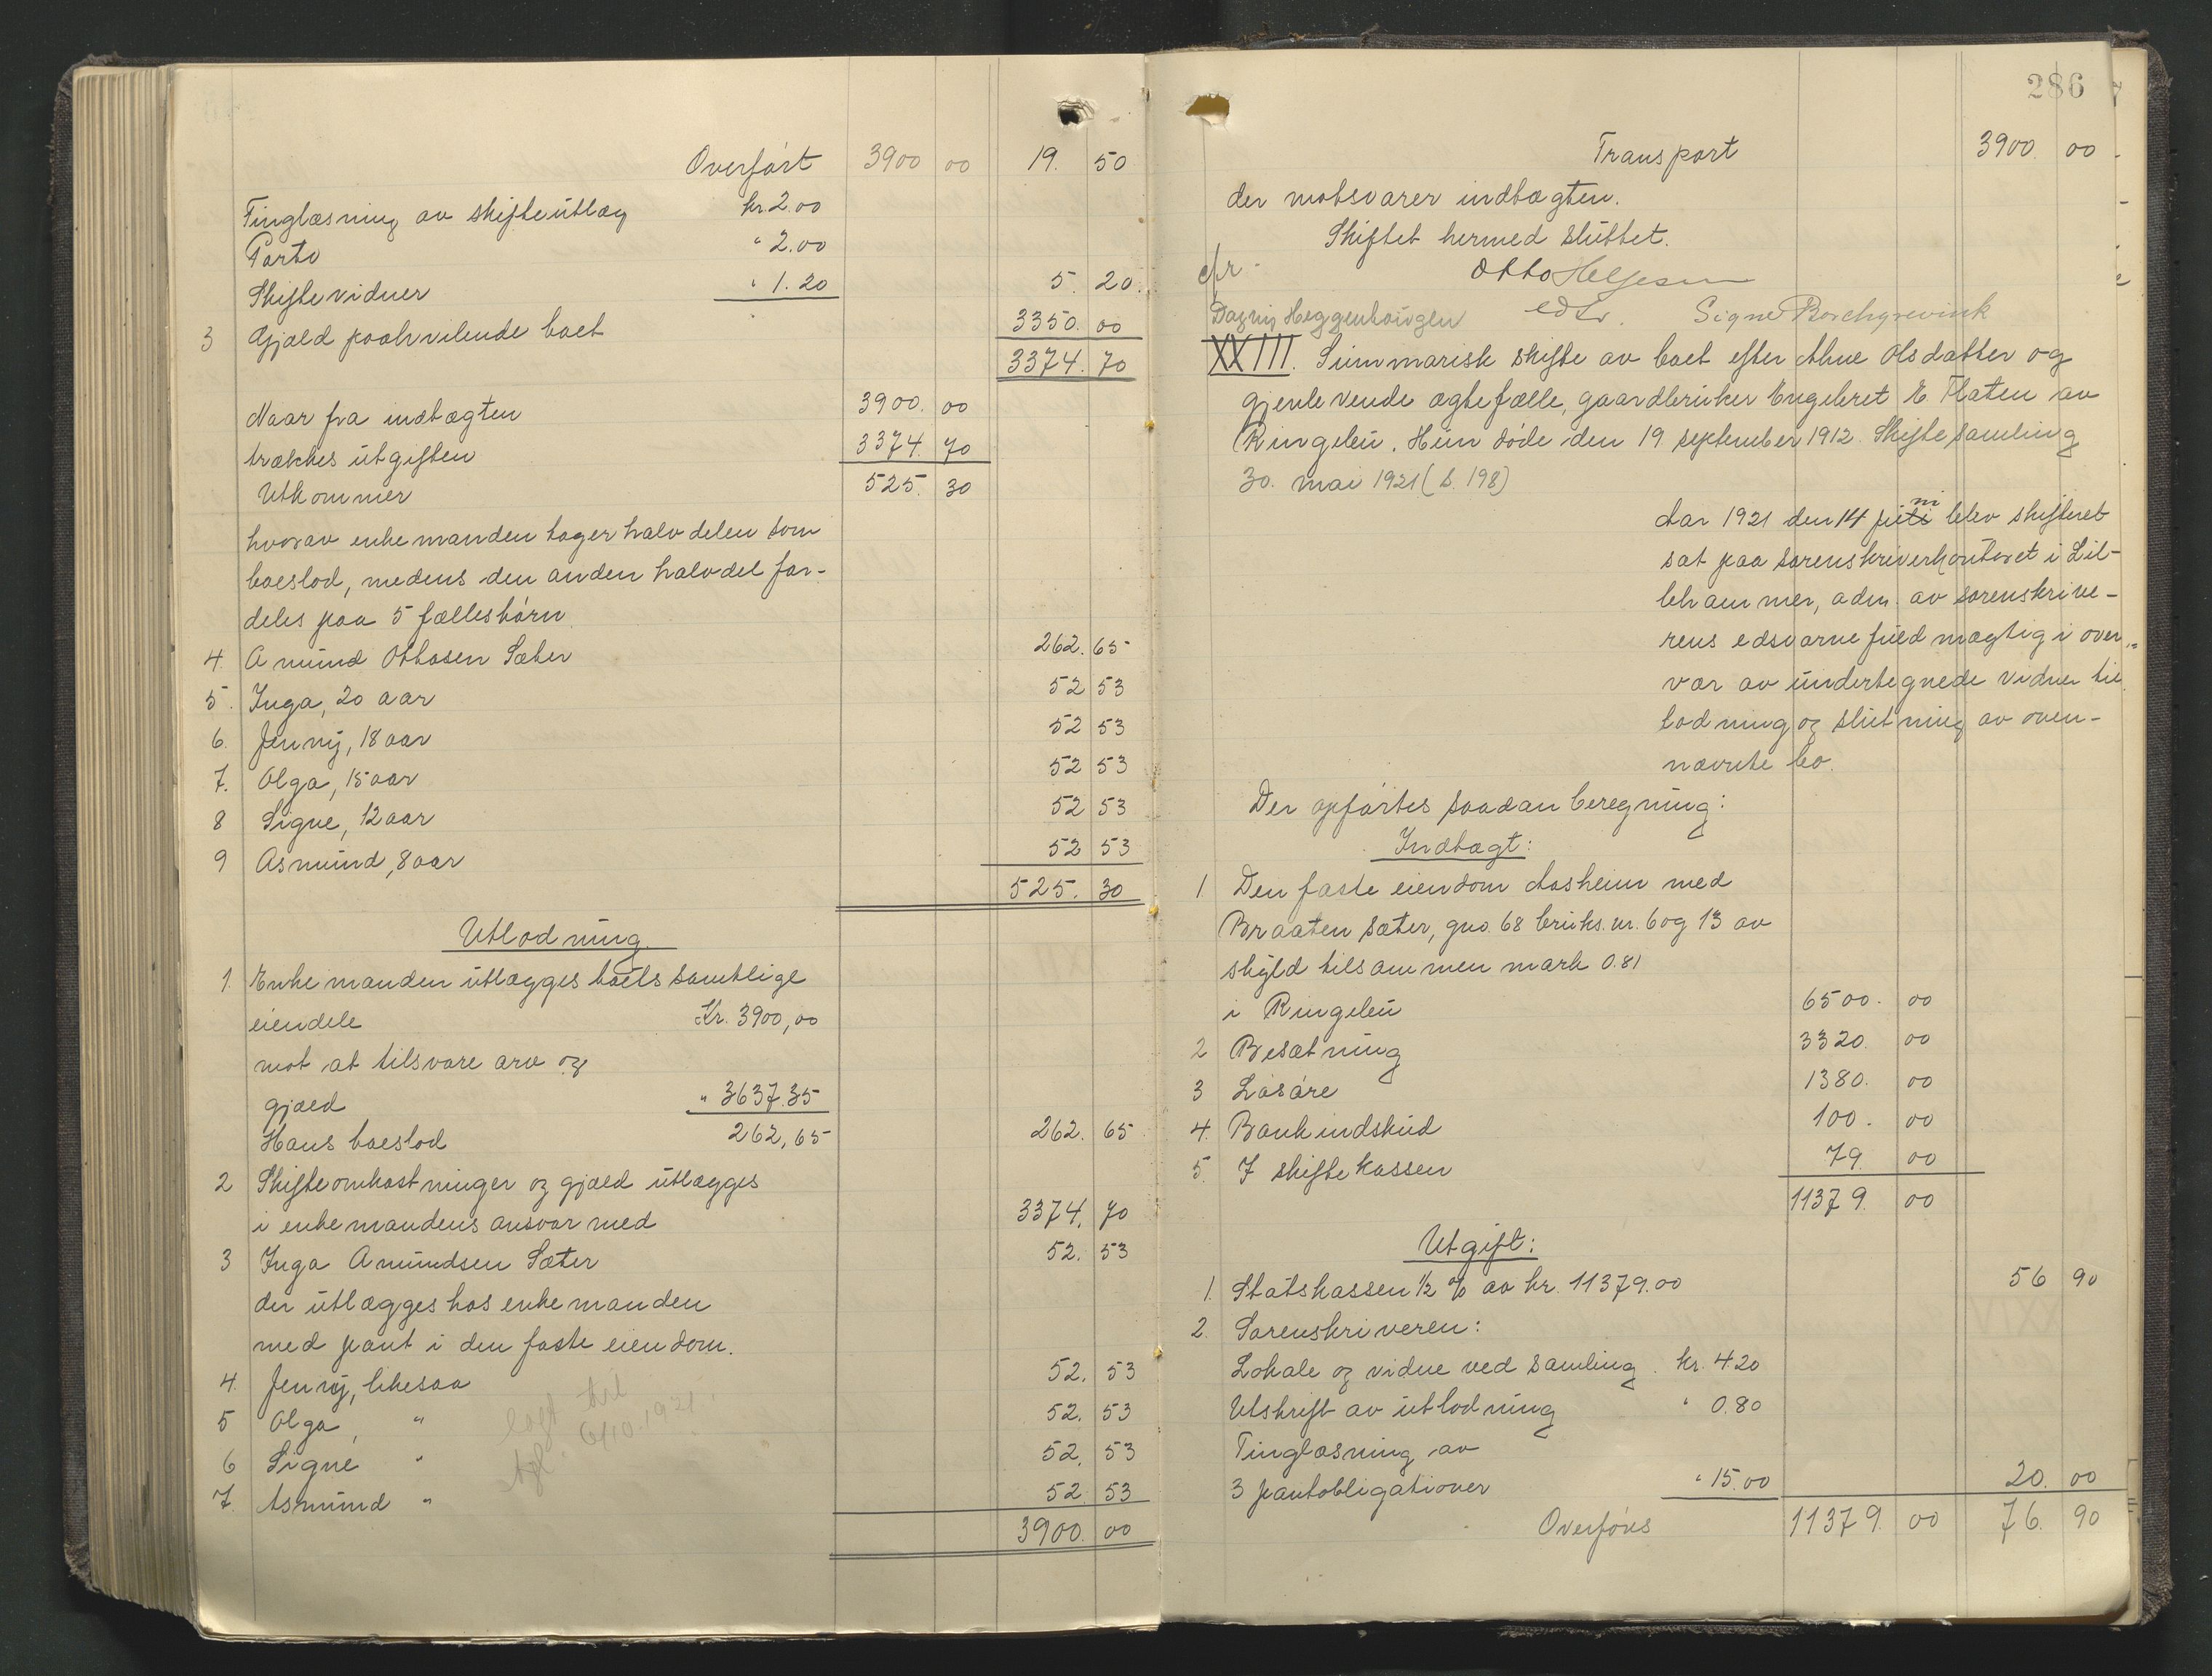 Overført 3900 00 19. 50
Tinglæsning av skifteutlæg kr. 2.00
Porto " 2.00
Skiftevidner " 1.20 5. 20
3 Gjæld paahvilende boet 3350. 00
3374. 70
Naar fra indtægten 3900. 00
trækkes utgiften 3374. 70
Utkommer 525. 30
hvorav enkemanden tager halvdelen som
boeslod, medens den anden halvdel for-
deles paa 5 fællesbørn
4. Amund Ottosen Sæter 262. 65
5. Inga, 20 aar 52 53
6. Jenny, 18 aar 52 53
7. Olga, 15 aar 52 53
8 Signe, 12 aar 52 53
9 Asmund, 8 aar 52 53
525. 30
Utlodning.
1. Enkemanden utlægges boets samtlige
eiendele Kr. 3900,00
mot at tilsvare arv og
gjæld " 3637.35
Hans boeslod 262,65 262. 65
2 Skifteomkostninger og gjæld utlægges
i enkemandens ansvar med 3374. 70
3 Inga Amundsen Sæter 52. 53
der utlægges hos enkemanden
med pant i den faste eiendom.
4. Jenny, likesaa 52. 53
5 Olga, " 52. 53
6 Signe " 52. 53
7. Asmund " 52. 53
3900. 00
lagt til
6/10. 1921.
286
Transport 3900. 00
der motsvarer indtægten.
Skiftet hermed sluttet.
cfr. Otto Helgesen
Dagny Heggenhougen eds. Signe Borchgrevink
XXIII. Summarisk skifte av boet efter Ahne Olsdatter og
gjenlevende ægtefælle, gaardbruker Engebret E Flaten av
Ringebu. Hun døde den 19 september 1912. Skiftesamling
30. mai 1921 (s. 198)
Aar 1921 den 14 juni blev skifteret
sat paa sorenskriverkontoret i Lil-
lehammer, adm. av sorenskrive-
rens edsvorne fuldmægtig i over-
vær av undertegnede vidner til
lodning og slutning av oven-
nævnte bo.
Der opførtes saadan beregning:
Indtægt:
1 Den faste eiendom Aasheim med
Braaten sæter, gno. 68 bruks.nr. 6 og 13 av
skyld tilsammen mark 0.81
i Ringebu 6500. 00
2 Besætning 3320. 00
3 Løsøre 1380. 00
4. Bankindskud 100. 00
5. I skiftekassen 79. 00
11379. 00
Utgift:
1. Statskassen ½ % av kr. 11379.00 56 90
2. Sorenskriveren:
Lokale og vidne ved samling. kr. 4.20
Utskrift av utlodning " 0.80
Tinglæsning av
3 pantobligationer " 15.00 20. 00
Overføres 11379. 00 76. 90